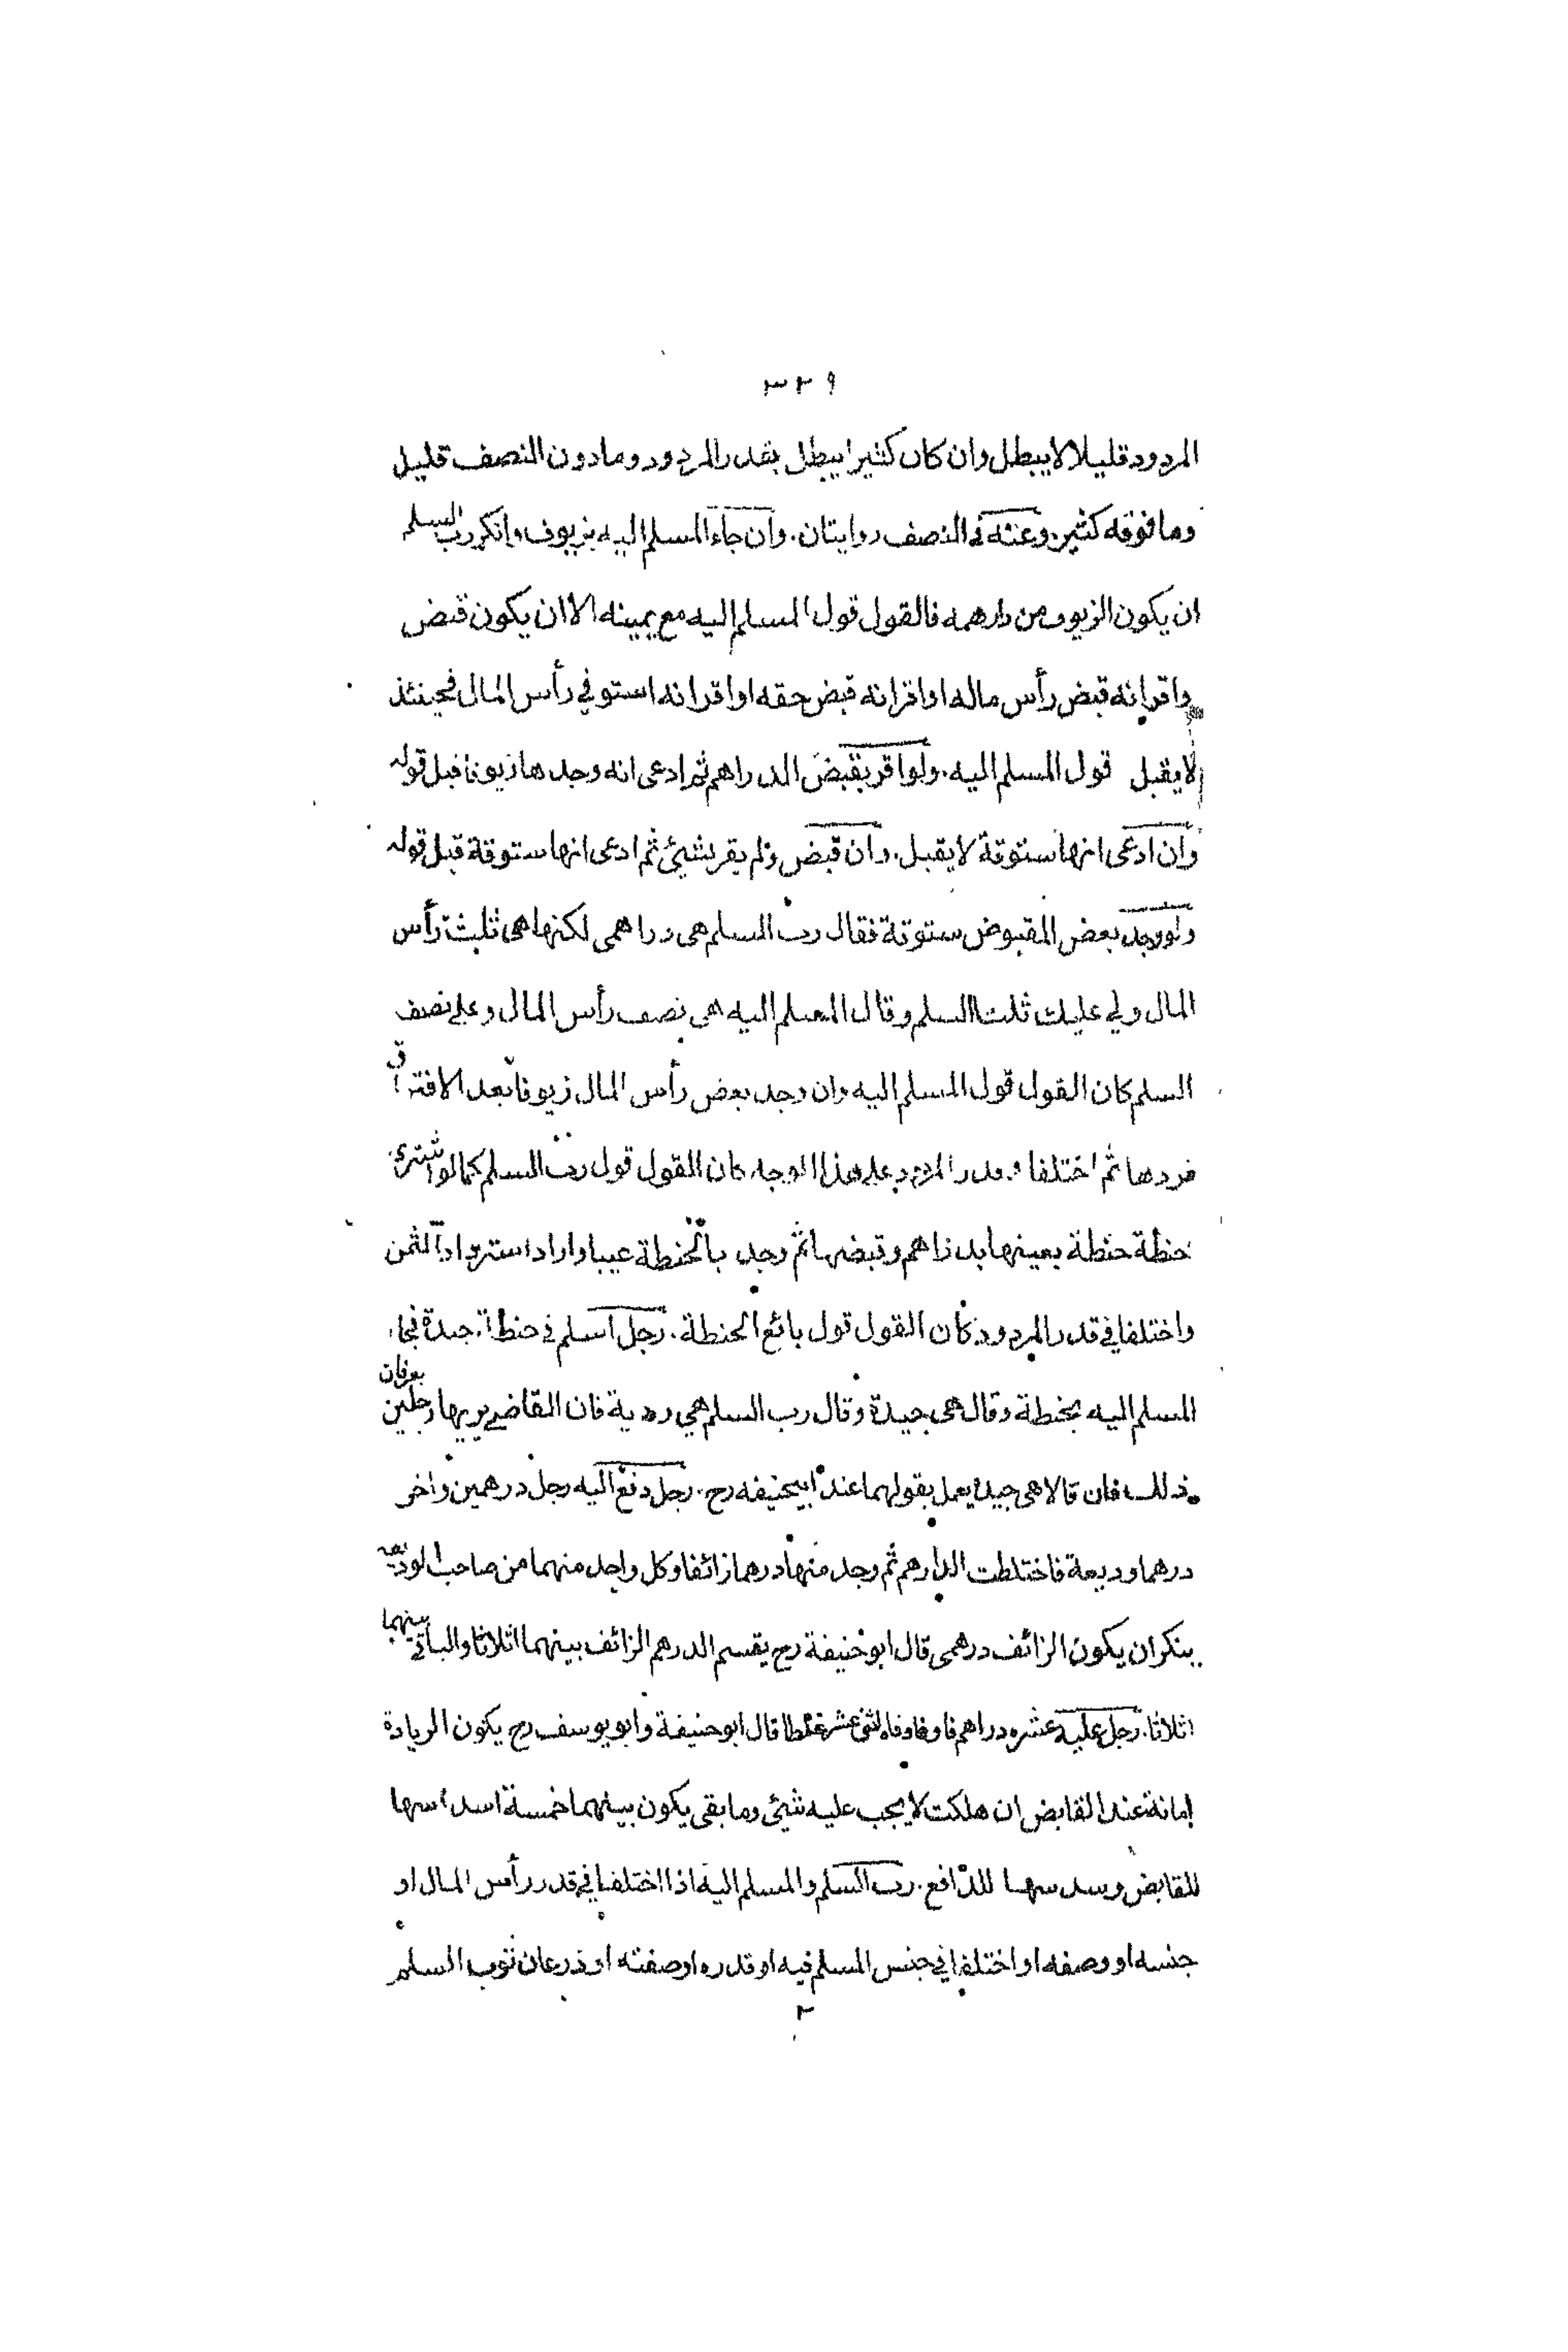 ٣٢٩
المردود قليلا لا يبطل وان كان كثيرا يبطل بقدر المردود وما دون النصف قليل
وما فوقه كثير وعنه في النصف روايتان. وان جاء المسلم اليه بزيوف وانكر رب السلم
ان يكون الزيوف من دارهمه فالقول قول المسلم اليه مع يمينه الا ان يكون قبض
واقر انه قبض رأس ماله او اقر انه قبض حقه او اقر انه استوفي رأس المال فحينئذ
لا يقبل قول المسلم اليه. ولو اقر بقبض الدراهم ثم ادعى انه وجدها زيوفا قبل قوله
وان ادعى انها ستوقة لا يقبل. وان قبض ولم يقر بشيئ ثم ادعى انها ستوقة قبل قوله
ولو وجد بعض المقبوض ستوقة فقال رب السلم هى دراهمى لكنها هى ثلث رأس
المال ولي عليك ثلثا السلم وقال المسلم اليه هى نصف رأس المال وعلي نصف
السلم كان القول قول المسلم اليه وان وجد بعض رأس المال زيوفا بعد الافتراق
فردها ثم اختلفا في قدر المردود على هذا الوجه كان القول قول رب السلم كما لو اشترى
حنطة حنطة بعينها بدراهم وقبضها ثم وجد بالحنطة عيبا واراد استرداد الثمن
واختلفا في قدر المردود كان القول قول بائع الحنطة. رجل اسلم في حنطة جيدة فجاء
المسلم اليه بحنطة وقال هى جيدة وقال رب السلم هي ردية فان القاضي يريها رجلين يعرفان
ذلك فان قالا هى جيدة يعمل بقولهما عند ابيحنيفه رح. رجل دفع اليه رجل درهمين واخر
درهما وديعة فاختلطت الدارهم ثم وجد منها درهما زائفا وكل واحد منهما من صاحب الوديعه
ينكر ان يكون الزائف درهمى قال ابو حنيفة رح يقسم الدرهم الزائف بينهما اثلاثا والباقي بينهما
اثلاثا. رجل عليه عشره دراهم فاوفاه اثنى عشر غلطا قال ابو حنيفة وابو يوسف رح يكون الزيادة
امانة عند القابض ان هلكت لا يجب عليه شيئ وما بقى يكون بينهما خمسة اسداسها
للقابض وسدسها للدافع. رب السلم والمسلم اليه اذا اختلفا في قدر رأس المال او
جنسه او وصفه او اختلفا في جنس المسلم فيه او قدره او صفته او ذرعان ثوب السلم
٢